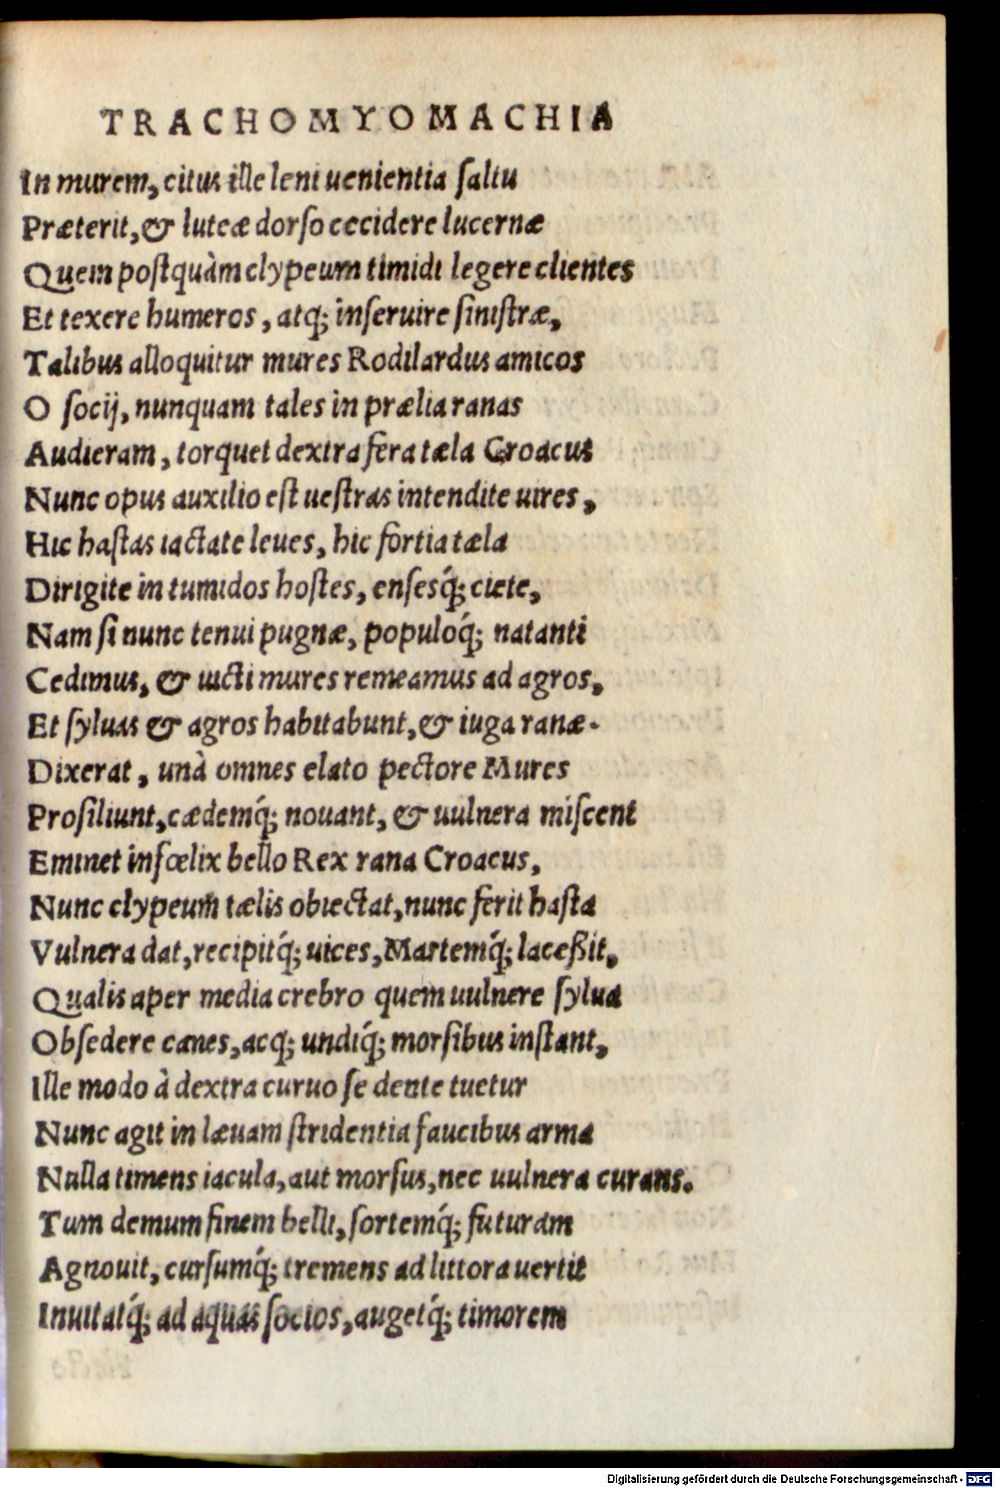 TRACHOMYOMACHIA
In murem, citus ille leni uenientia ſaltu
Præterit, & luteæ dorſo cecidere lucernæ
Quem poſtquàm clypeum timidi legere clientes
Et texere humeros, atq; inſeruire ſiniſtræ,
Talibus alloquitur mures Rodilardus amicos
O ſocij, nunquam tales in prælia ranas
Audieram, torquet dextra fera tæla Croacus
Nunc opus auxilio eſt ueſtras intendite uires,
Hic haſtas iactate leues, hic fortia tæla
Dirigite in tumidos hoſtes, enſesq́; ciete,
Nam ſi nunc tenui pugnæ, populoq́; natanti
Cedimus, & uicti mures remeamus ad agros,
Et ſyluas & agros habitabunt, & iuga ranæ.
Dixerat, unà omnes elato pectore Mures
Proſiliunt, cædemq́; nouant, & uulnera miſcent
Eminet infœlix bello Rex rana Croacus,
Nunc clypeum̃ tælis obiectat, nunc ferit haſta
Vulnera dat, recipitq́; uices, Martemq́; laceßit,
Qualis aper media crebro quem uulnere ſylua
Obſedere canes, acq; undiq́; morſibus inſtant,
Ille modo à dextra curuo ſe dente tuetur
Nunc agit in læuam ſtridentia faucibus arma
Nulla timens iacula, aut morſus, nec uulnera curans.
Tum demum finem belli, ſortemq́; futuram
Agnouit, curſumq́; tremens ad littora uertit
Inuitatq́; ad aquas ſocios, augetq́; timorem
Digitalisierung gefördert durch die Deutsche Forschungsgemeinschaft - DFG